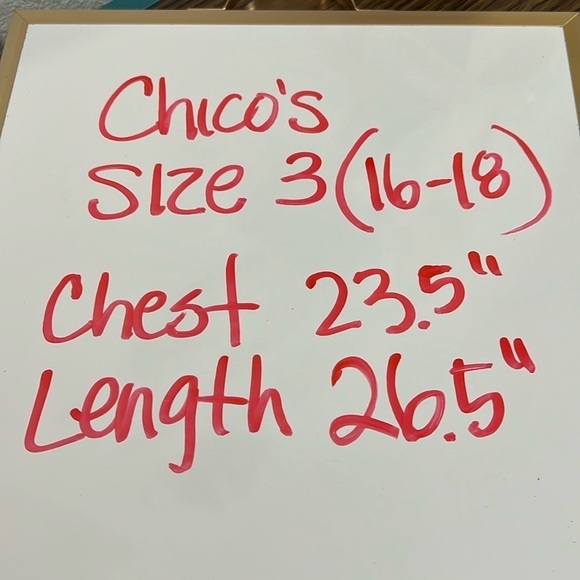 Chico's
Size 3 (16-18)
Chest 23.5"
Length 26.5"